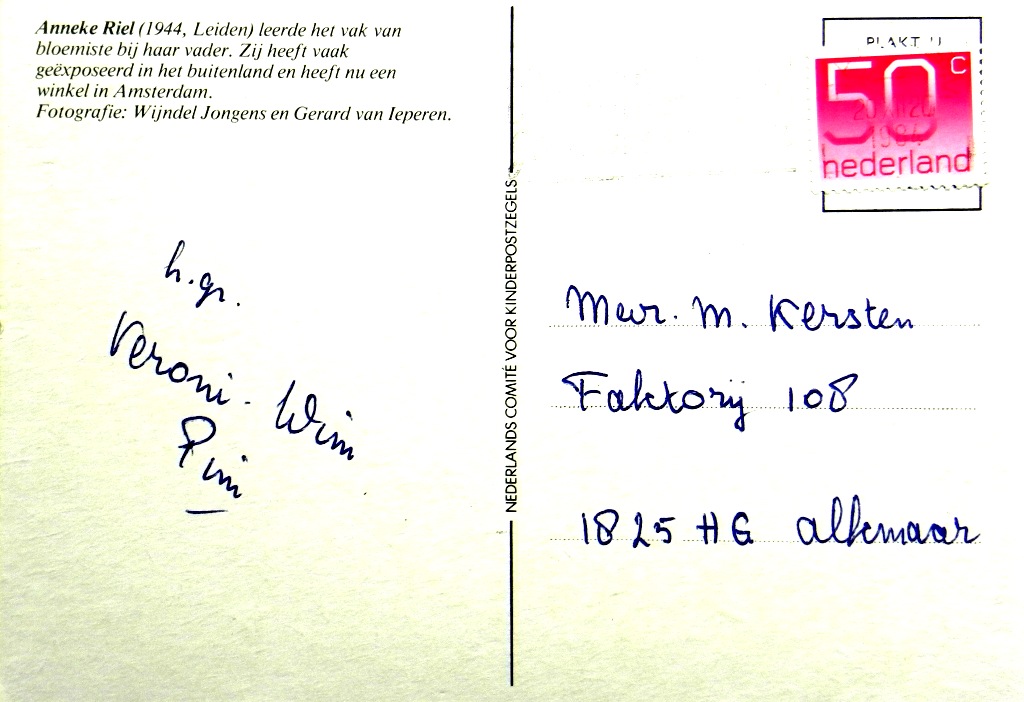 Anneke Riel (1944, Leiden) leerde het vak van
bloemiste bij haar vader. Zij heeft vaak
geëxposeerd in het buitenland en heeft nu een
winkel in Amsterdam.
Fotografie: Wijndel Jongens en Gerard van Ieperen.
h.gr.
Veroni - Wim
Pim
NEDERLANDS COMITÉ VOOR KINDERPOSTZEGELS
PLAKT U
50 c
1984
nederland
Mevr. M. Kersten
Faktorij 108
1825 HG Alkmaar